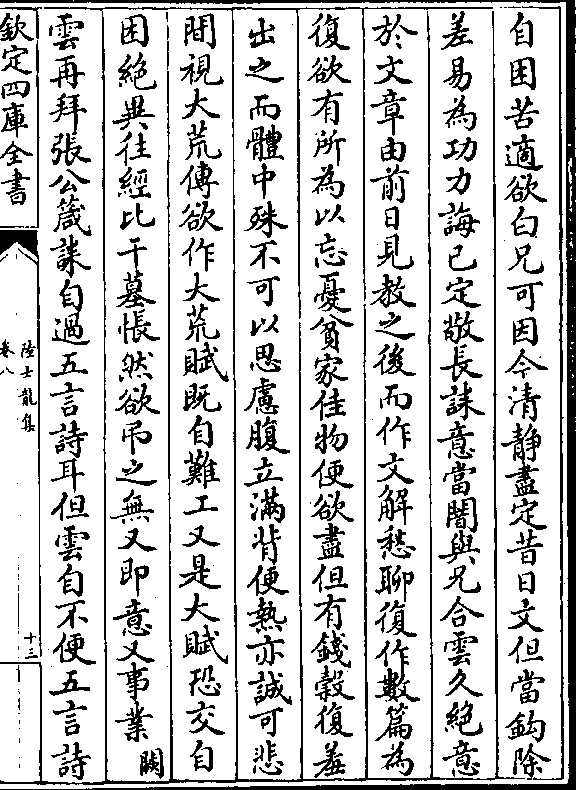 自困苦適欲白兄可因今清靜盡定昔日文但當鈎除
差易為功力誨已定敬長誄意當闇與兄合雲久絕意
於文章由前日見教之後而作文解愁聊復作數篇為
復欲有所為以忘憂貧家佳物便欲盡但有錢穀復羞
出之而體中殊不可以思慮腹立滿背便熱亦誠可悲
閒視大荒傳欲作大荒賦既自難工又是大賦恐交自
困絕異往經比干墓悵然欲弔之無又即意又事業闕
雲再拜張公箴誄自過五言詩耳但雲自不便五言詩
欽定四庫全書
陸士龍集
卷八
十三